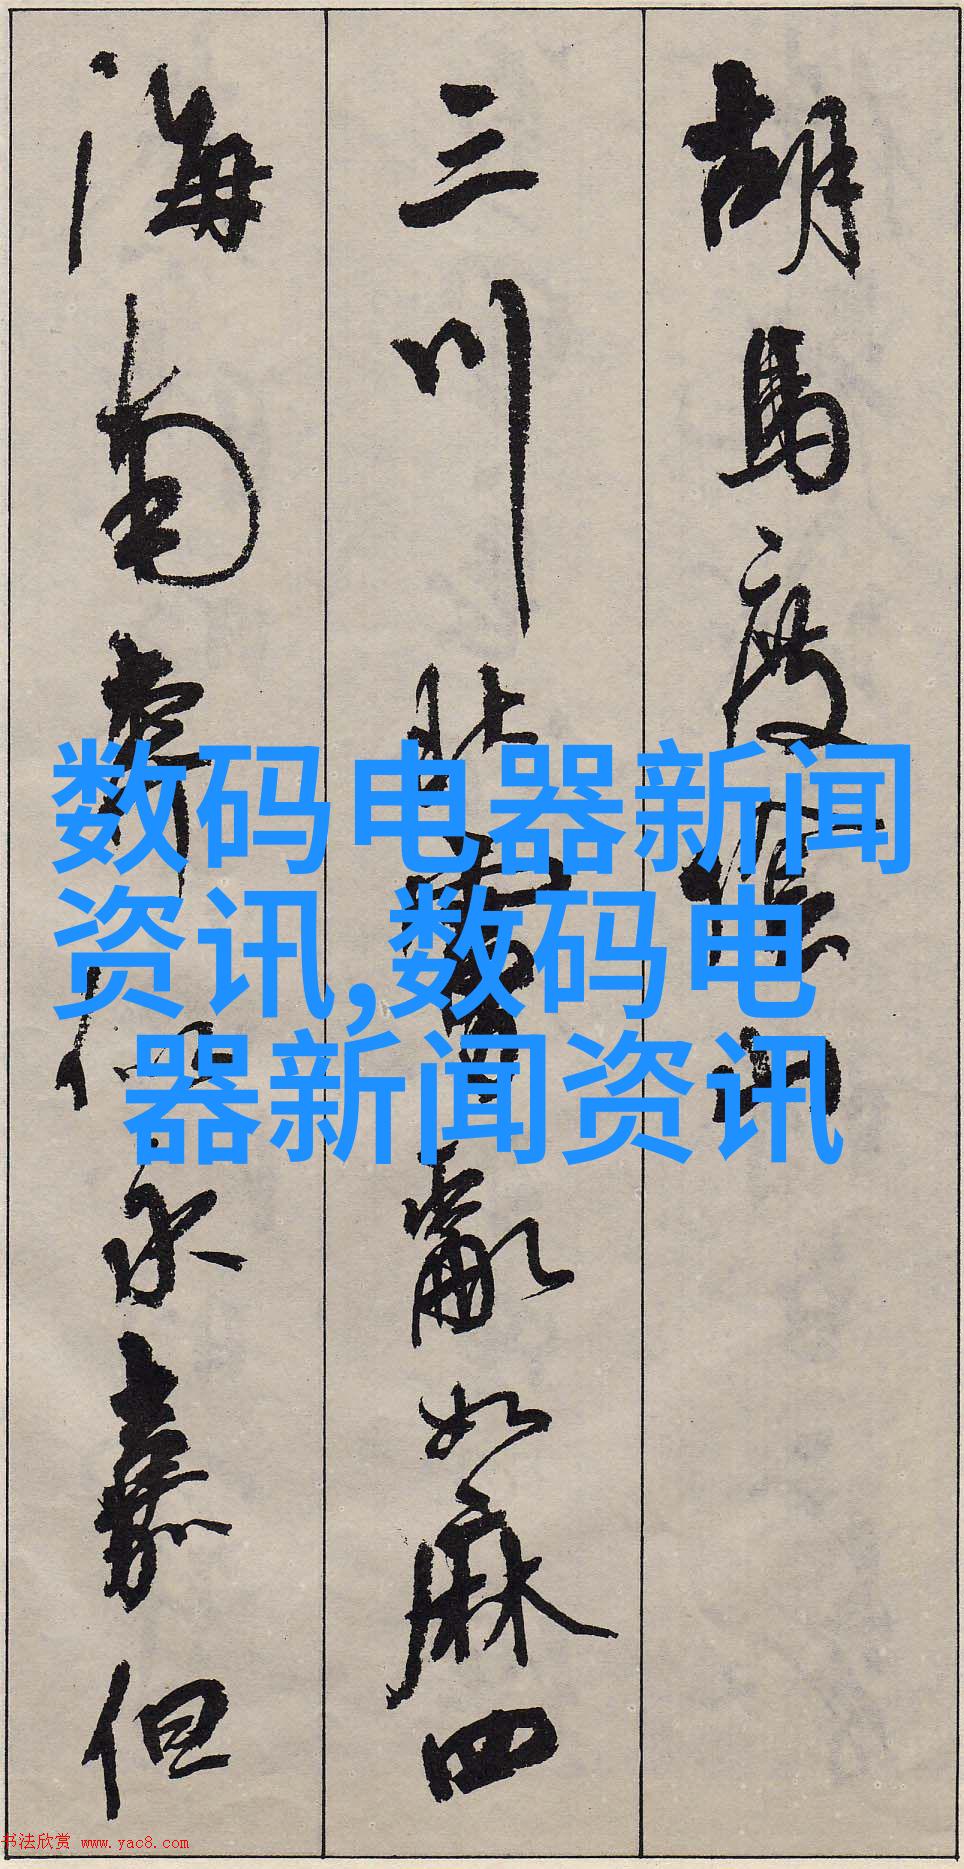 胡马度阴山
三川北虏乱如麻四
海南奔似永嘉但
数码电器新闻
资讯,数码电
器新闻资讯
书法欣赏 www.yac8.com